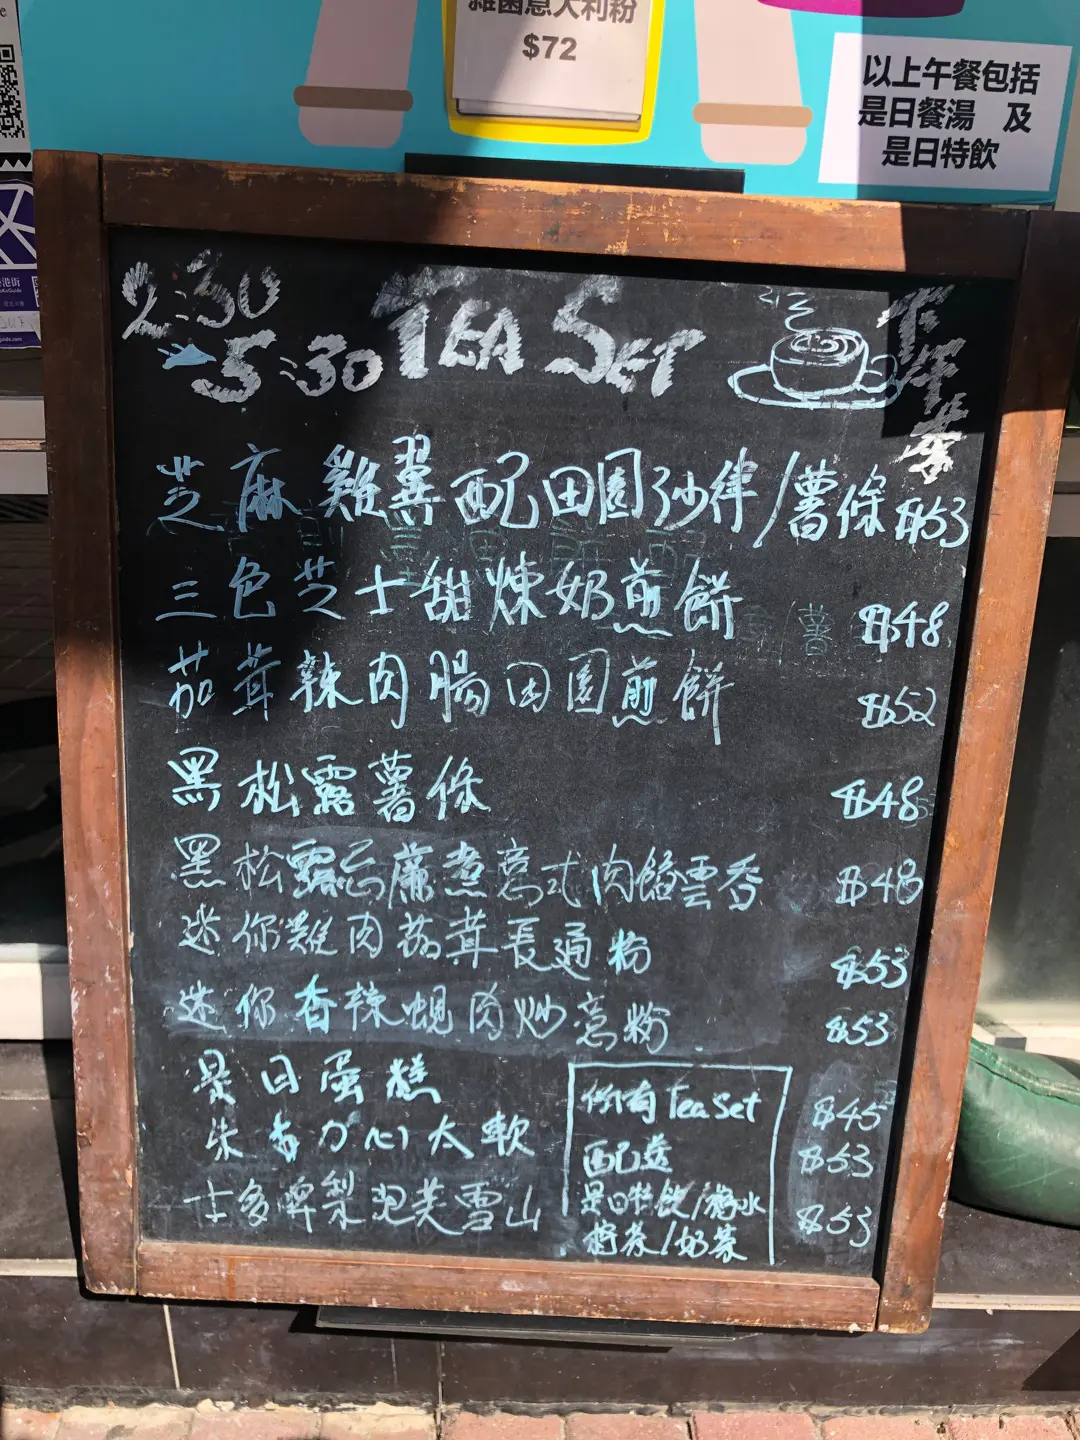 雜菌意大利粉
$72
以上午餐包括
是日餐湯 及
是日特飲
2:30
5:30 TEA SET
下午茶
芝麻雞翼配田園沙律/薯條 $53
三色芝士甜煉奶煎餅 $48
茄茸辣肉腸田園煎餅 $52
黑松露薯條 $48
黑松露忌廉煮意式肉餡雲吞 $48
迷你雞肉茄茸長通粉 $53
迷你香辣蜆肉炒意粉 $53
是日蛋糕 $45
朱古力心太軟 $53
士多啤梨泡芙雪山 $53
所有Tea Set
配送
是日特飲/梳水
檸茶/奶茶